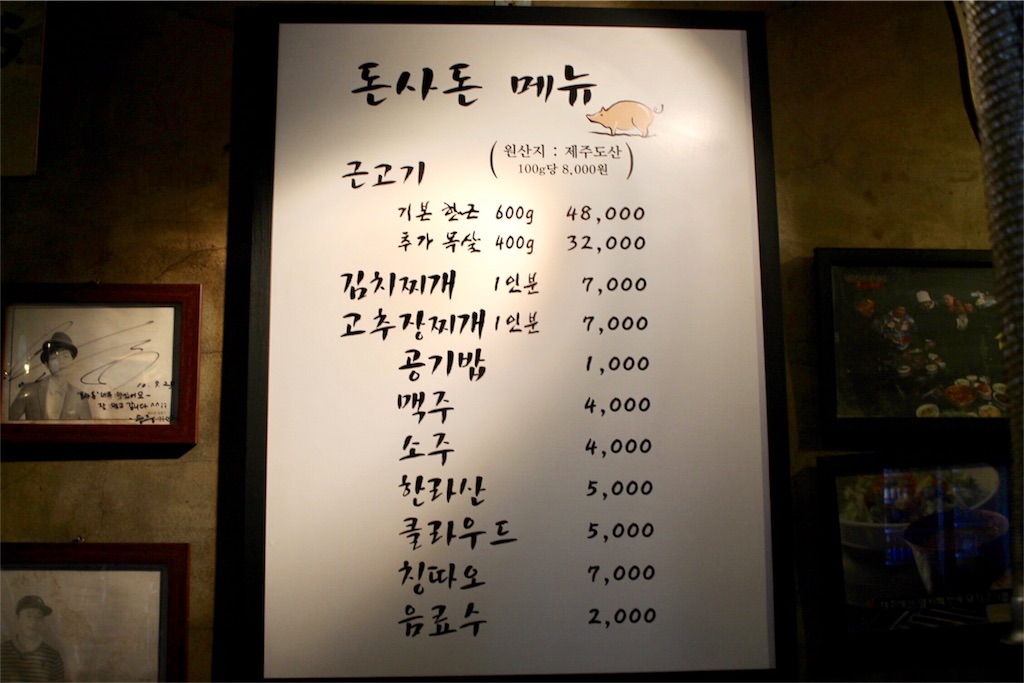 돈사돈 메뉴
(원산지 : 제주도산
100g당 8,000원)
근고기
기본 한근 600g 48,000
추가 목살 400g 32,000
김치찌개 1인분 7,000
고추장찌개 1인분 7,000
공기밥 1,000
맥주 4,000
소주 4,000
한라산 5,000
클라우드 5,000
칭따오 7,000
음료수 2,000